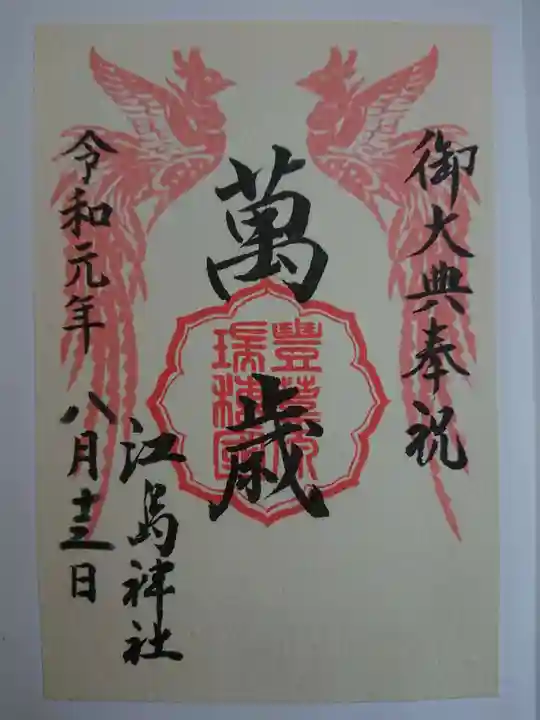 御大典奉祝
萬歳
豐葦原
瑞穂國
江島神社
令和元年
八月十三日